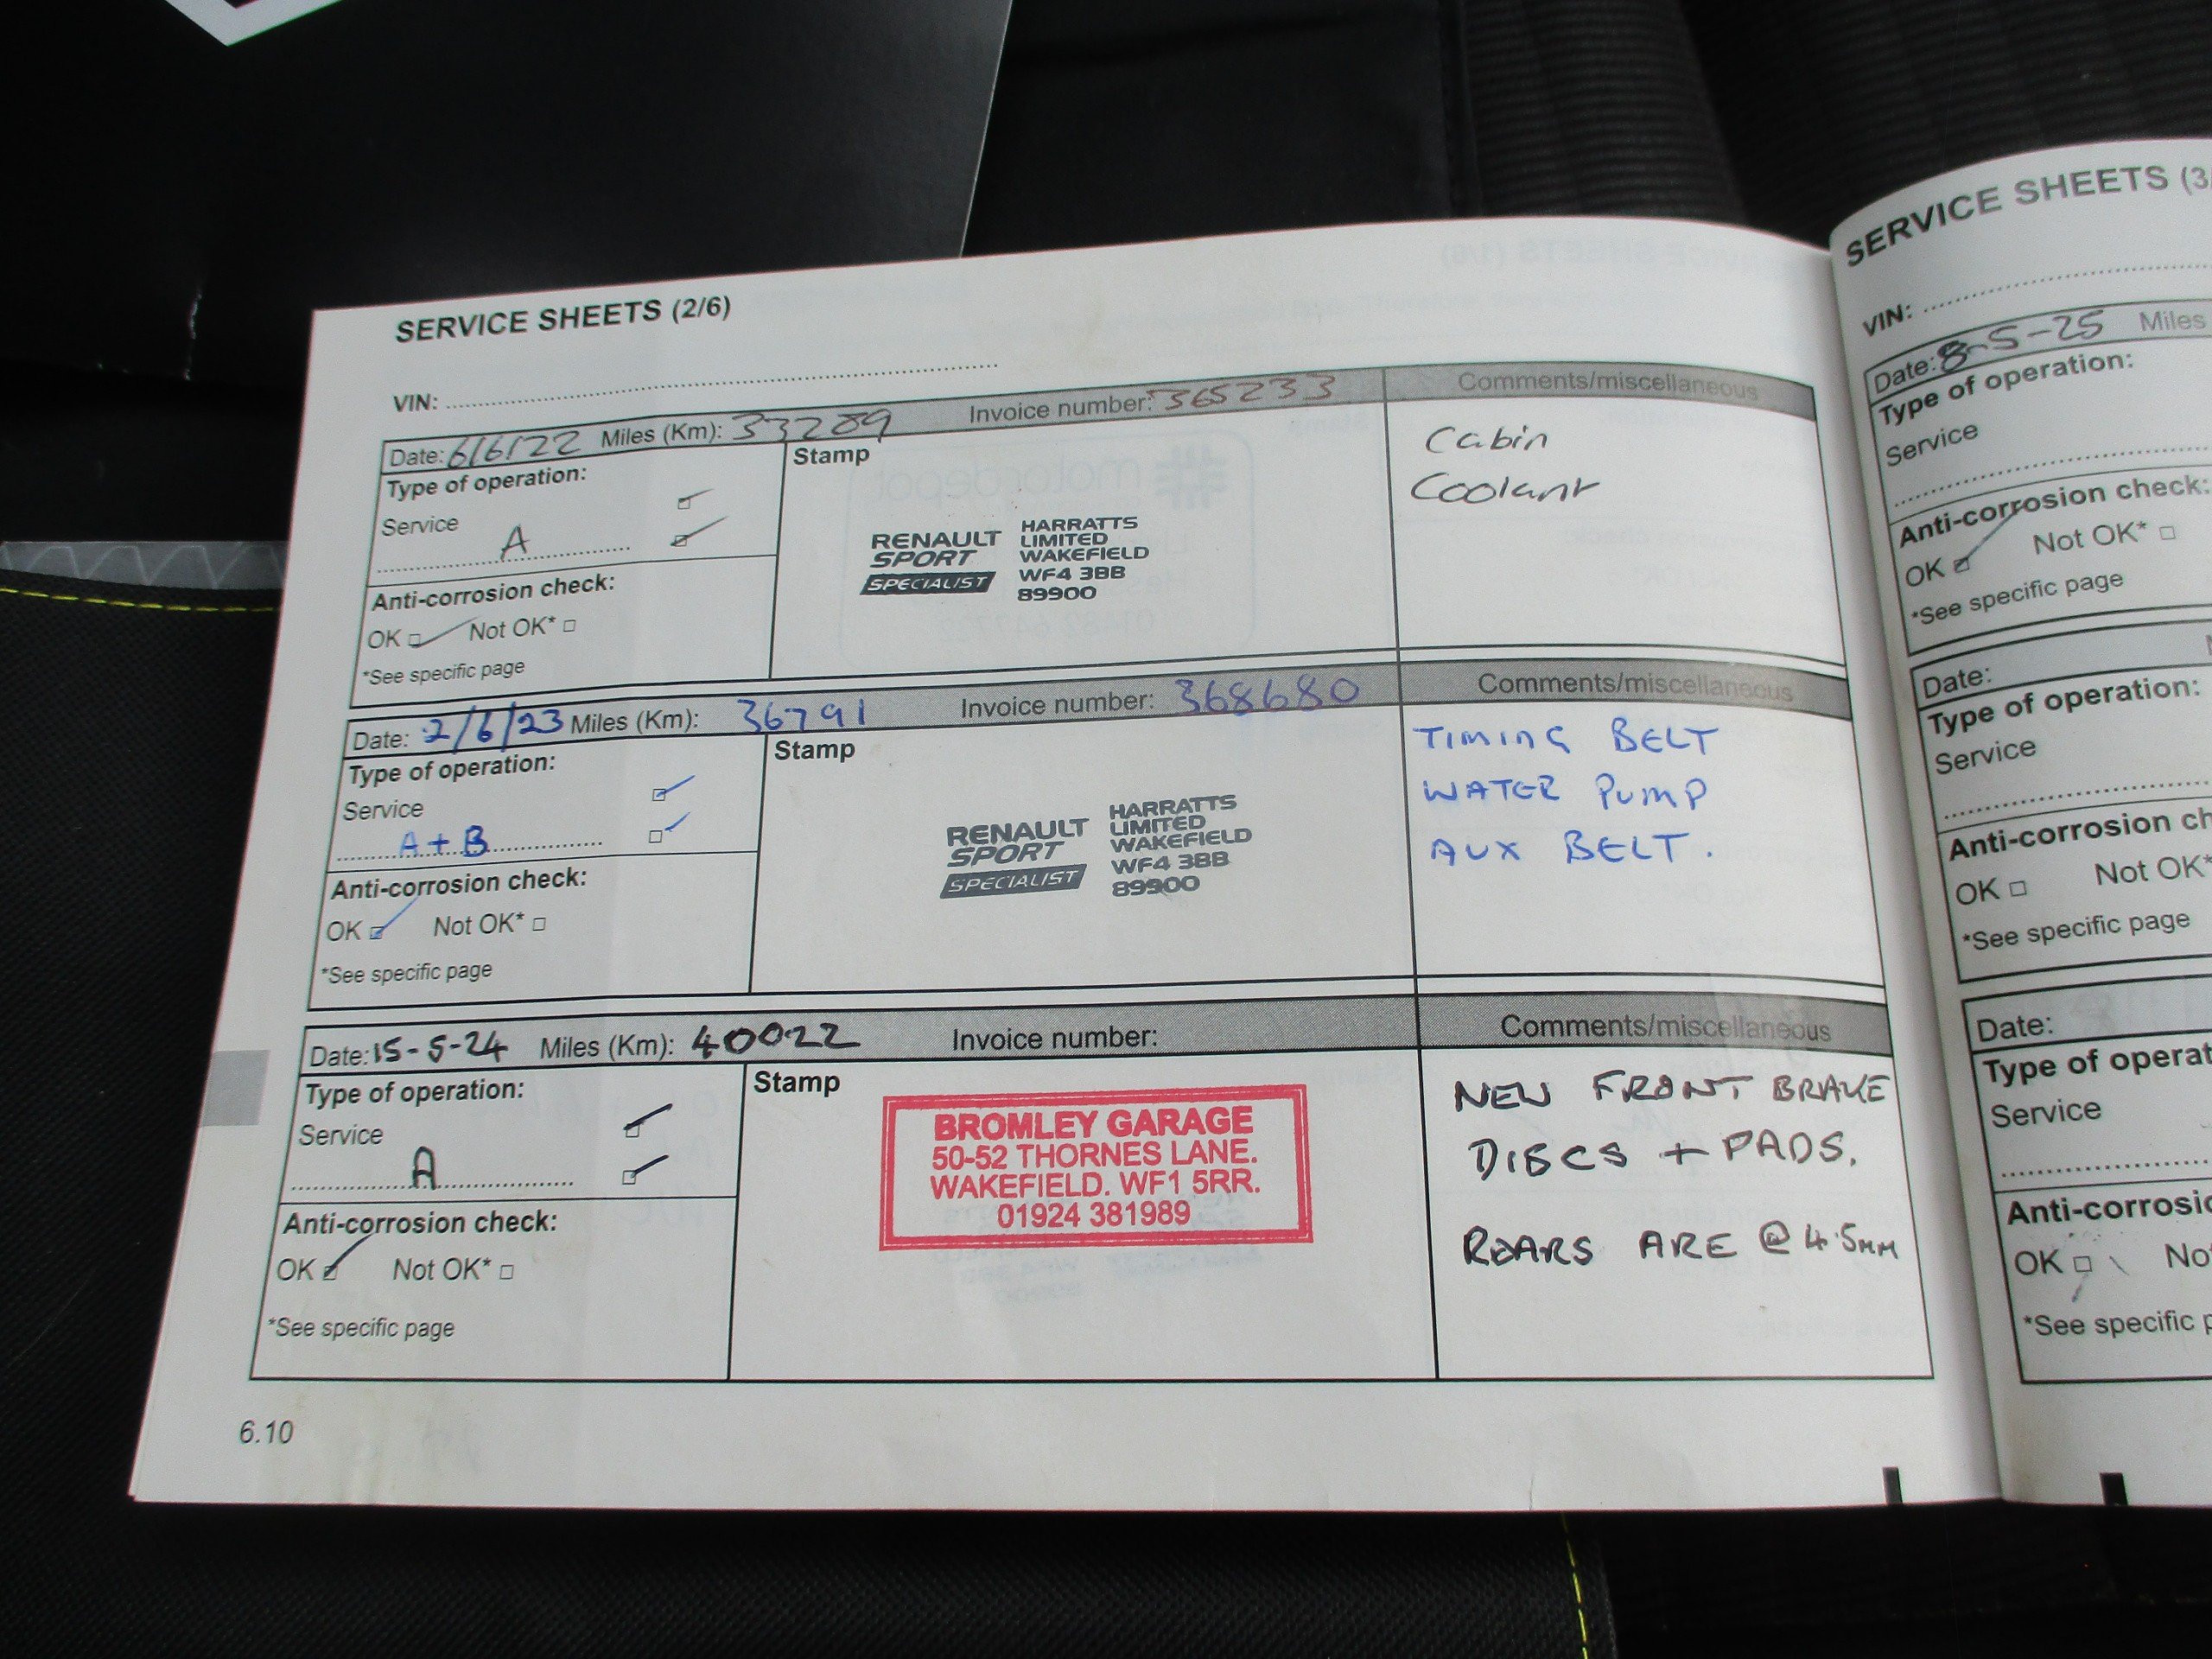 SERVICE SHEETS (2/6)
VIN:
Date: 6/6/22 Miles (Km): 33289 Invoice number: 365233 Comments/miscellaneous
Type of operation:
Service
A
Anti-corrosion check:
OK Not OK*
*See specific page
Stamp
RENAULT SPORT SPECIALIST
HARRATTS
LIMITED
WAKEFIELD
WF4 3BB
89900
Cabin
Coolant
Date: 2/6/23 Miles (Km): 36791 Invoice number: 368680 Comments/miscellaneous
Type of operation:
Service
A + B
Anti-corrosion check:
OK Not OK*
*See specific page
Stamp
RENAULT SPORT SPECIALIST
HARRATTS
LIMITED
WAKEFIELD
WF4 3BB
89900
TIMING BELT
WATER PUMP
AUX BELT.
Date: 15-5-24 Miles (Km): 40022 Invoice number: Comments/miscellaneous
Type of operation:
Service
A
Anti-corrosion check:
OK Not OK*
*See specific page
Stamp
BROMLEY GARAGE
50-52 THORNES LANE.
WAKEFIELD. WF1 5RR.
01924 381989
NEW FRONT BRAKE
DISCS + PADS.
REARS ARE @ 4.5MM
6.10
SERVICE SHEETS (3/
VIN:
Date: 8-5-25 Miles
Type of operation:
Service
Anti-corrosion check:
OK Not OK*
*See specific page
Date:
Type of operation:
Service
Anti-corrosion ch
OK Not OK*
*See specific page
Date:
Type of operat
Service
Anti-corrosi
OK No
*See specific p